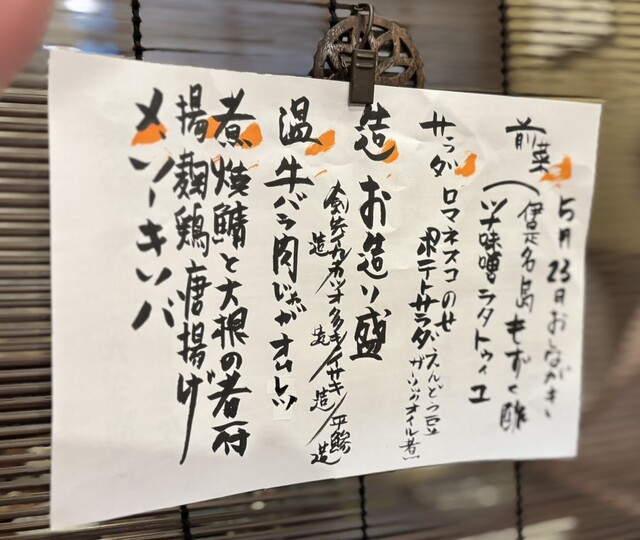 5月23日おしながき
前菜
伊是名島もずく酢
味噌ラタトゥイユ
サラダ ロマネスコのせ
ポテトサラダ/えんどう豆
ガーリックオイル煮
造 お造り盛
イサキ 造
平鯵 造
温 牛バラ肉じゃがオムレツ
煮 焼鯖と大根の煮付
揚 麹鶏唐揚げ
メ ソーキソバ